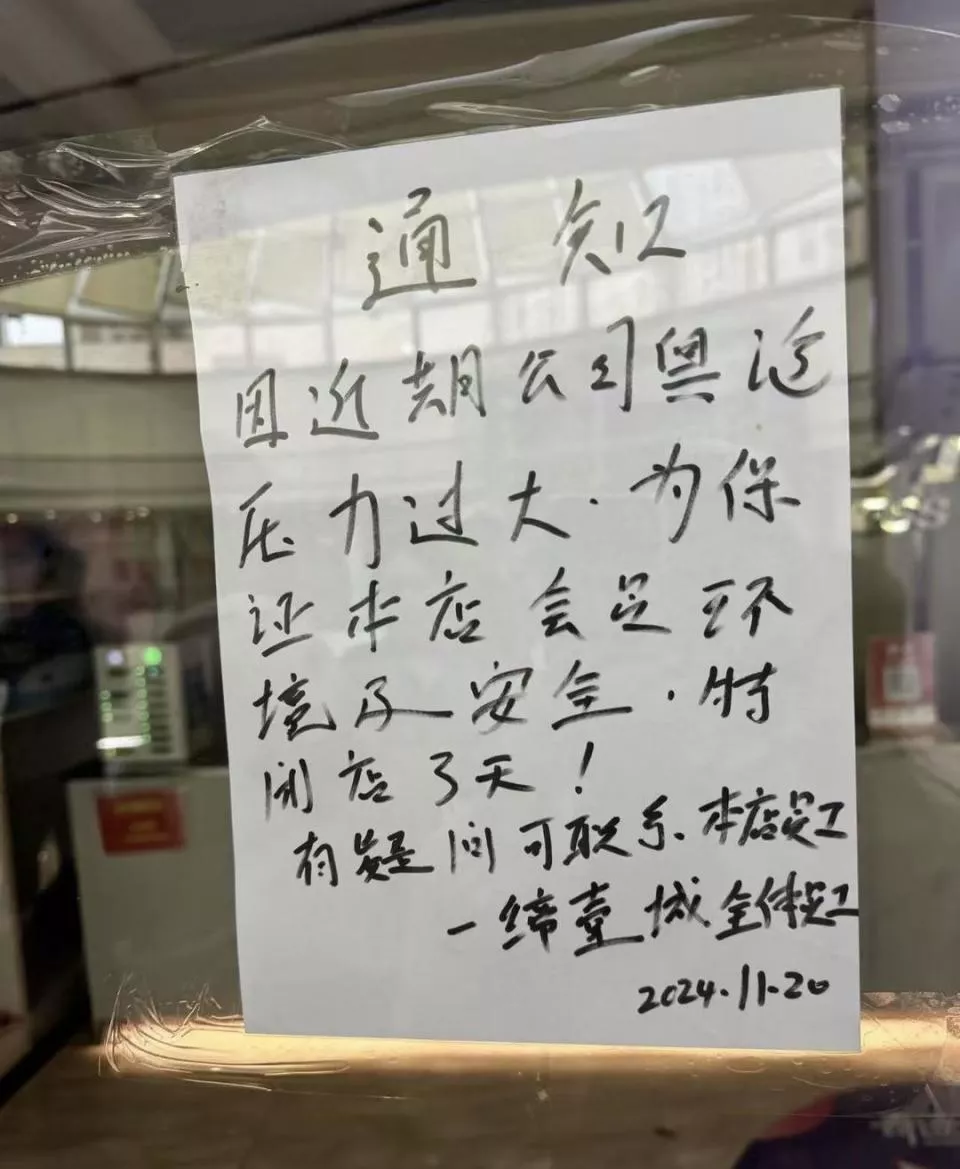 通知
因近期公司舆论
压力过大.为保
证本店会员环
境及安全.特
闭店3天!
有疑问可联系.本店员工
-缔壹城全体员工
2024.11.20